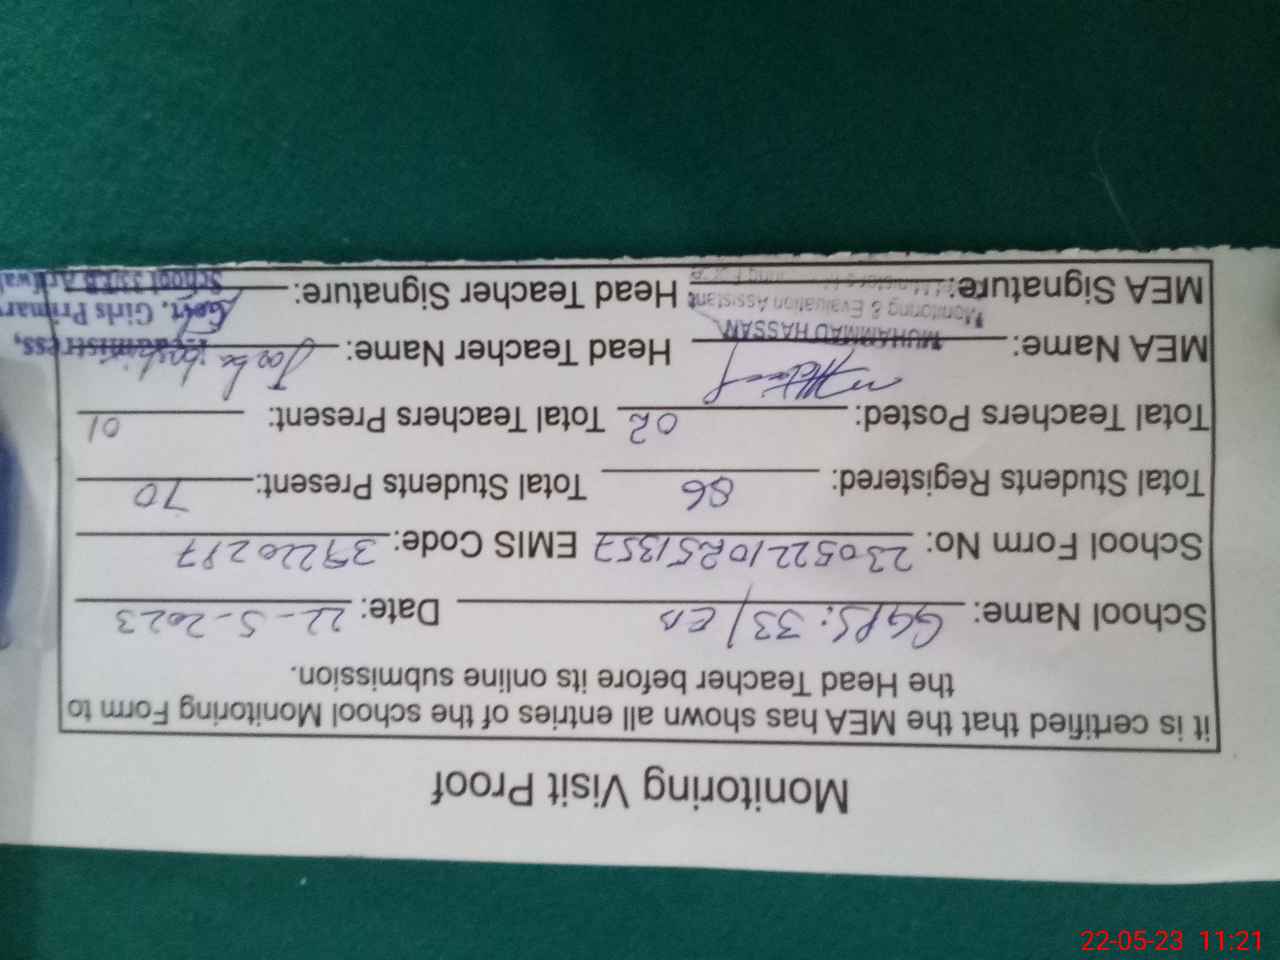 Monitoring Visit Proof
it is certified that the MEA has shown all entries of the school Monitoring Form to
the Head Teacher before its online submission.
School Name: GGPS: 33/EB Date: 22-5-2023
School Form No: 23052210251357 EMIS Code: 39220297
Total Students Registered: 86 Total Students Present: 70
Total Teachers Posted: 02 Total Teachers Present: 01
MEA Name: MUHAMMAD HASSAN Head Teacher Name:
Monitoring & Evaluation Assistant
MEA Signature: Head Teacher Signature:
Headmistress,
Govt. Girls Primary
School 33/EB
22-05-23 11:21